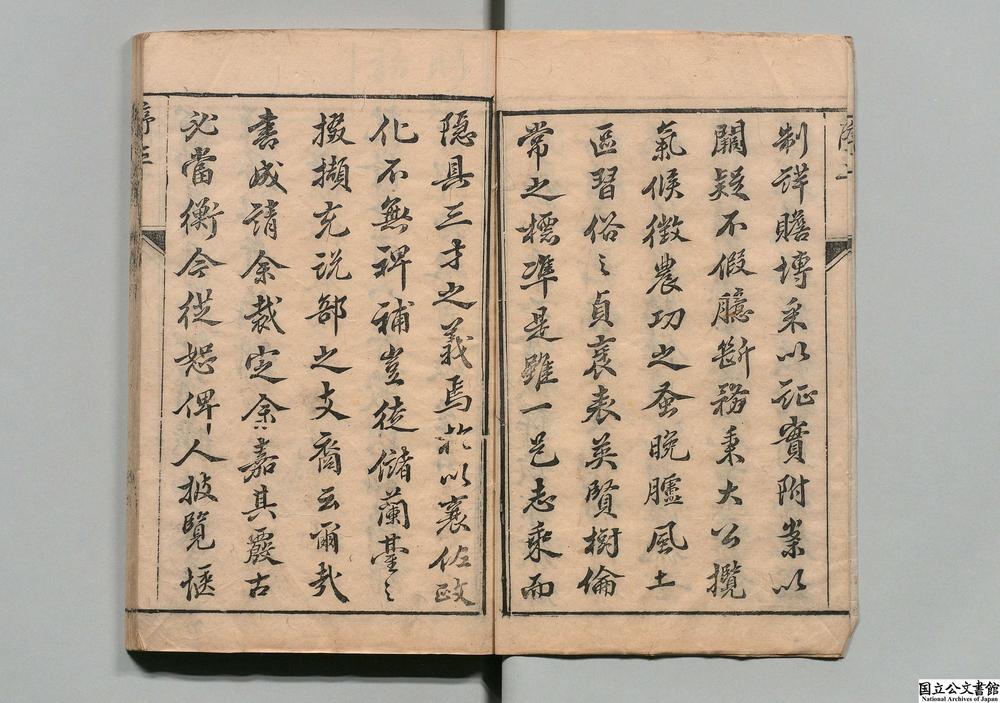 制詳贍博采以証實附案以
闕疑不假臆斷務秉大公攬
氣候徵農功之蚤晚臚風土
區習俗之貞衰表英賢樹倫
常之標準是雖一邑志乘而
隱具三才之義焉於以襄佐政
化不無裨補豈徒儲蘭臺之
掇擷充說部之支裔云爾哉
書成請余裁定余嘉其覈古
必當衡今從恕俾人披覽愜
序三
国立公文書館
National Archives of Japan